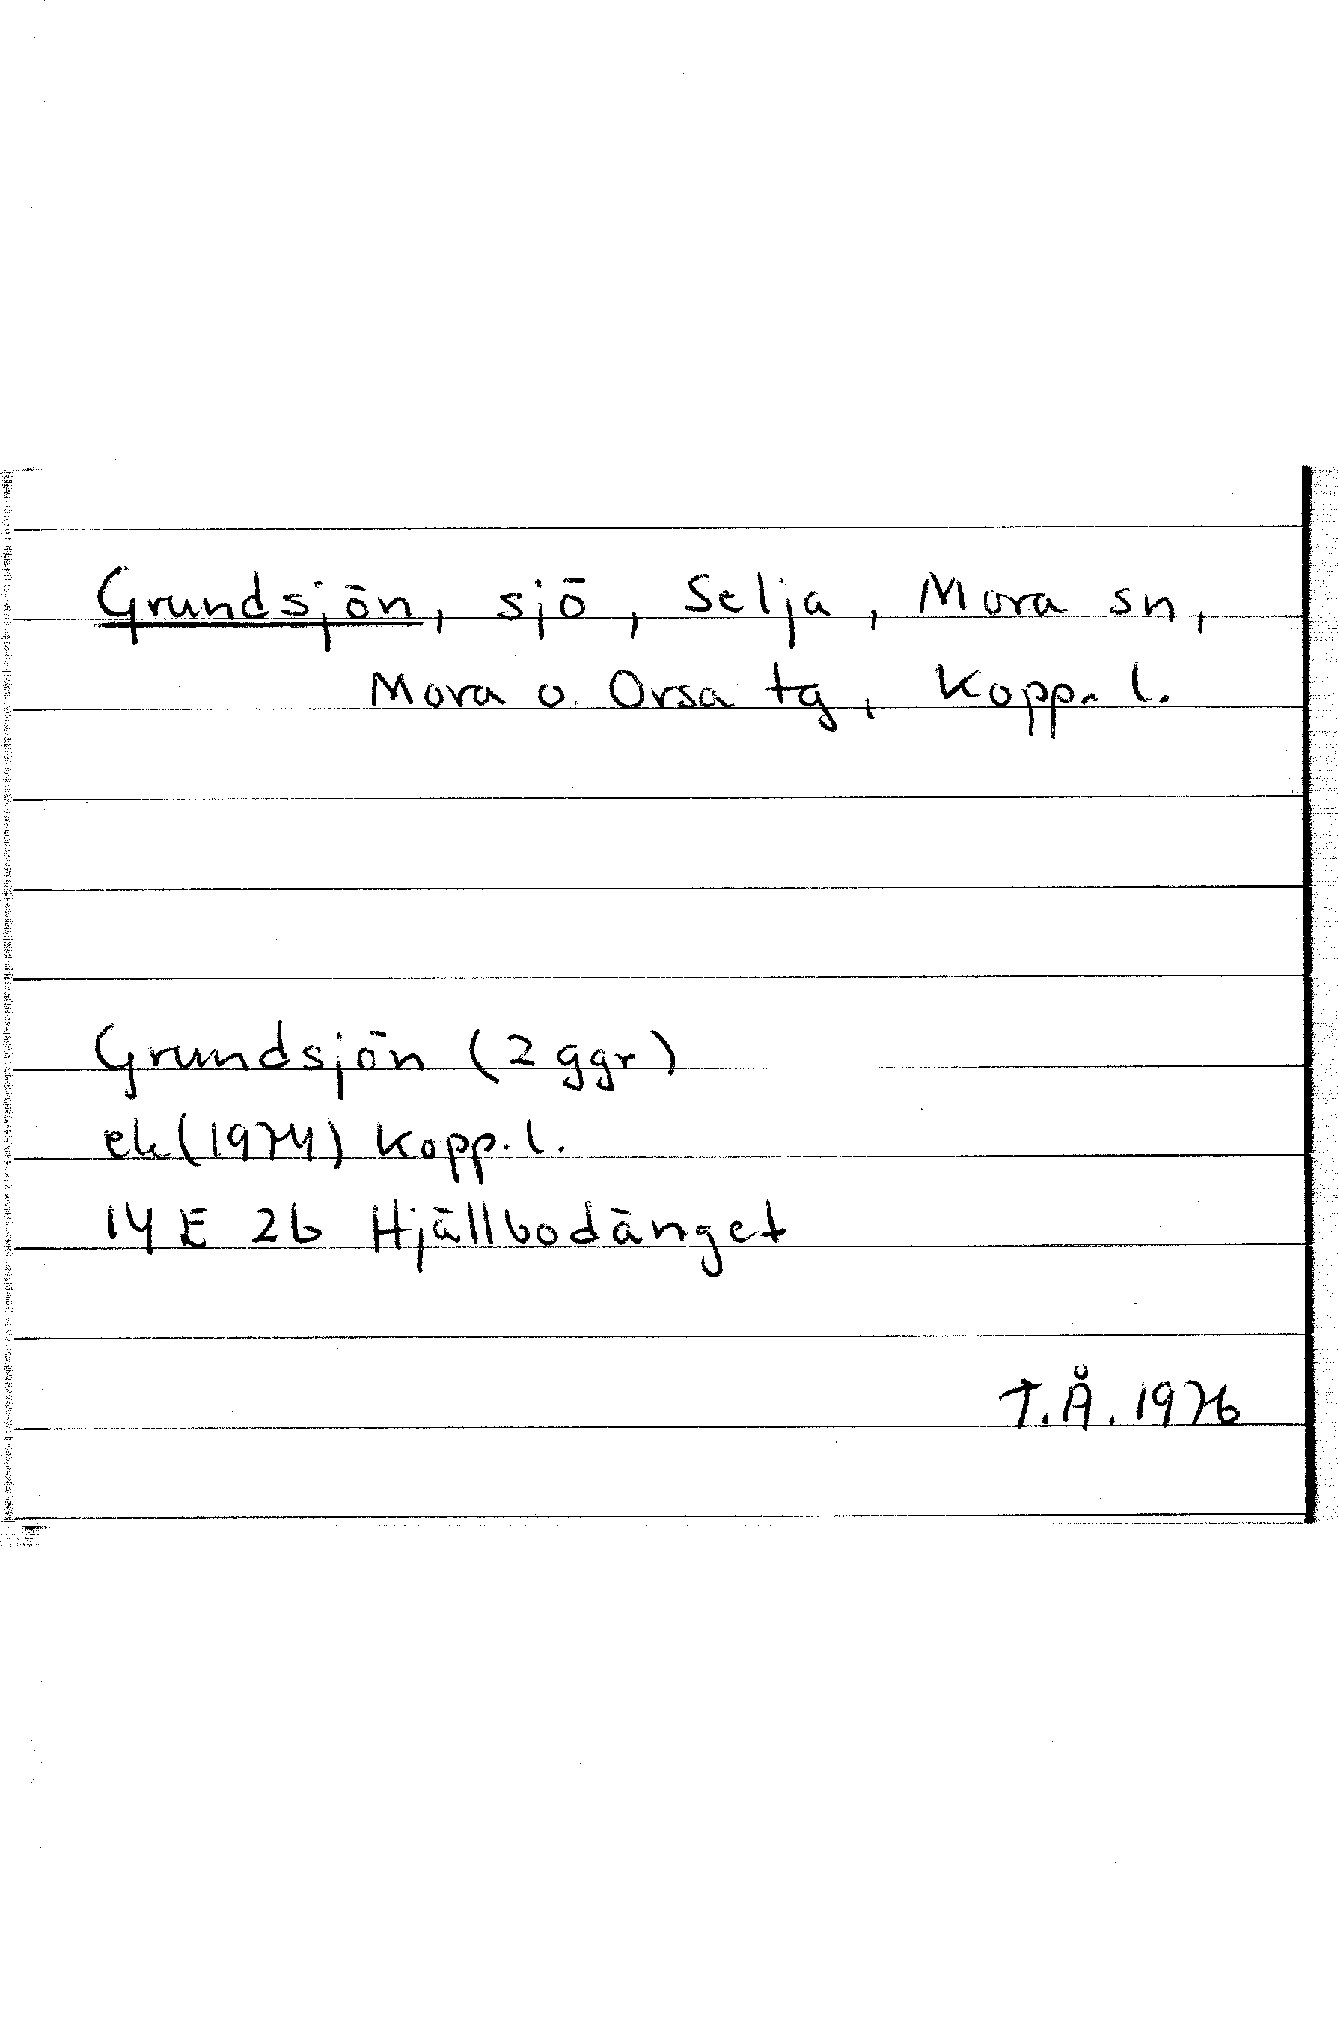 Grundsjön, sjö, Selja, Mora sn,
Mora o. Orsa tg, Kopp. l.
Grundsjön (2 ggr)
ek (1974) Kopp. l.
14 E 2b Hjällbodänget
T.Å. 1976